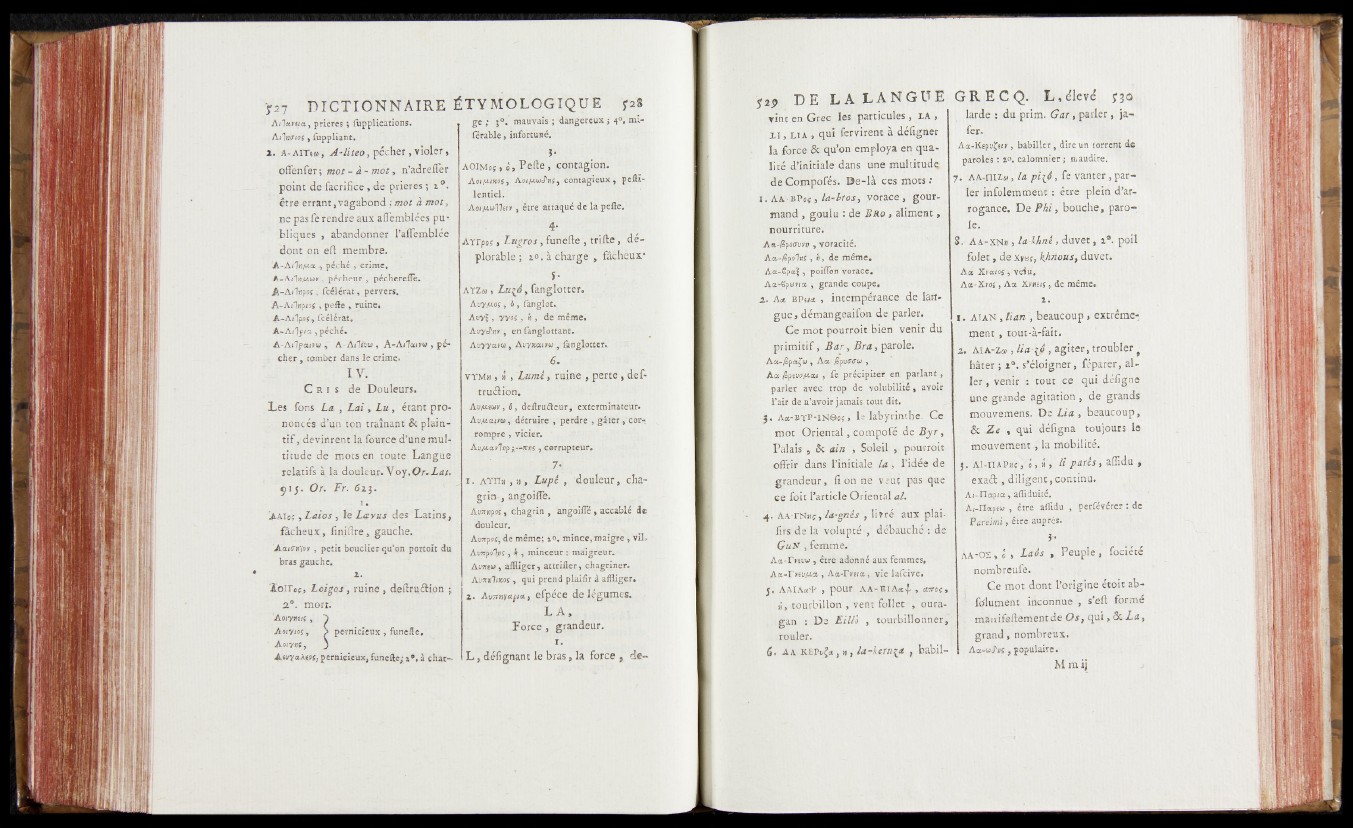 527 DICTIONNAIRE ÉTYMOLOGIQUE 528
prieres ; ſupplications.
ſuppliant.
2. A-ΛΙΤεω, A-liteo, pécher, violer,
offenſer; mot - à - mot, n'adreſſer
point de ſacrifice, de prieres ; 2°.
être errant, vagabond ; mot à mot,
ne pas ſe rendre aux aſſemblées pu-
bliques , abandonner l'aſſemblée
dont on eſt membre.
péché , crime,
pécheur , péchereſſe.
ſcélérat, pervers.
peſte , ruine.
ſcélérat.
péché.
pé-
cher , tomber dans le crime.
IV.
CRIS de Douleurs.
Les ſons La , Lai, Lu, étant pro-
noncés d'un ton traînant & plain-
tif, devinrent la ſource d'une mul-
titude de mots en toute Langue
relatifs à la douleur. Voy. Or. Lat.
915. Or. Fr. 623.
1.
ΛΑΙος, Laios, le Lævus des Latins,
fâcheux, ſiniſtre , gauche.
petit bouclier qu'on portoit du
bras gauche.
2.
ΛΟΙΓος, Loigos, ruine , deſtruction ;
2°. mort.
Λοιγιος, } pernicieux , funeſte.
pernicieux, funeſte; 2°. à char-
ge ; 3°. mauvais ; dangereux ; 4°. mi-
ſérable , infortuné.
3.
ΛΟΙΜος, ὁ, Peſte, contagion.
contagieux, peſti-
lentiel.
être attaqué de la peſte.
4.
ΛΥΓρος , Lugros, funeſte , triſte, dé-
plorable ; 2°. à charge , fâcheux.
5.
ΛΥΖω , Luzô, ſanglotter.
ſanglot.
de même.
en ſanglottant.
ſanglotter.
6.
ΛΥΜη , ἡ , Lumé, ruine , perte , deſ-
truction.
deſtructeur, exterminateur.
Λυμαινω, détruire , perdre , gâter, cor-
rompre , vicier.
corrupteur.
7.
1. ΛΥΠη , ἡ , Lupé , douleur, cha-
grin , angoiſſe.
Λυπηρος, chagrin , angoiſſé, accablé de
douleur.
Λυπρος, de même: 2°. mince, maigre , vil.
minceur : maigreur.
Λυπεω, affliger, attriſter, chagriner.
qui prend plaiſir à affliger.
2. eſpéce de légumes.
LA,
Force , grandeur.
1.
L, déſignant le bras, la force , de-
529 DE LA LANGUE GRECQ. L, élevé 530
vint en Grec les particules , LA ,
LI , LIA , qui ſervirent à déſigner
la force & qu'on employa en qua-
lité d'initiale dans une multitude
de Compoſés. De-là ces mots :
1. ΛΑ-ΒΡος, la-bros, vorace, gour-
mand , goulu : de BRO , aliment,
nourriture.
voracité.
de même.
poiſſon vorace.
grande coupe.
2. intempérance de lan-
gue, démangeaiſon de parler.
Ce mot pourroit bien venir du
primitif , Bar, Bra, parole.
ſe précipiter en parlant,
parler avec trop de volubilité, avoir
l'air de n'avoir jamais tout dit.
3. Λα-ΒΥΡ-ΙΝΘος, le labyrinthe. Ce
mot Oriental, compoſé de Byr,
Palais , & ain , Soleil , pourroit
offrir dans l'initiale la, l'idée de
grandeur, ſi on ne veut pas que
ce ſoit l'article Oriental al.
4. ΛΑ-ΓΝης, la-gnés , livré aux plai-
ſirs de la volupté , débauché : de
GuN , femme.
être adonné aux femmes,
vie laſcive.
5. ΛΑΙΛΑΨ , pour
ἡ, tourbillon , vent follet , oura-
gan : De Eilló , tourbillonner,
rouler.
6. ΛΑ ΚΕΡυζα, ἡ, la-keruza , babil-
larde : du prim. Gar, parler, ja-
ſer.
babiller, dire un torrent de
paroles : 2°. calomnier ; maudire.
7. ΛΑ-ΠΙΖω, la pizô, ſe vanter, par-
ler inſolemment : être plein d'ar-
rogance. De Phi , bouche, paro-
le.
8. ΛΑ-ΧΝη , la-khné, duvet , 2°. poil
folet , de Χνους, khnous, duvet.
velu.
de même.
2.
1. ΛΙΑΝ, lian , beaucoup, extrême-
ment , tout-à-fait.
2. ΛΙΑ-Ζω , lia-zô, agiter, troubler,
hâter ; 2°. s'éloigner, ſéparer, al-
ler, venir : tout ce qui déſigne
une grande agitation , de grands
mouvemens. De Lia , beaucoup,
& Ze , qui déſigna toujours le
mouvement, la mobilité.
3. ΛΙ-ΠΑΡης, ὁ, ἡ, li parés, aſſidu ,
exact , diligent, continu.
Λι-Παρια, aſſiduité.
Λι-Παρεω , être aſſidu , perſévérer : de
Pareimi, être auprès.
3.
ΛΑ-ΟΣ, ὁ , Laós , Peuple, ſociété
nombreuſe.
Ce mot dont l'origine étoit ab-
ſolument inconnue , s'eſt formé
manifeſtement de Os, qui, & La,
grand, nombreux.
populaire.
M m ij